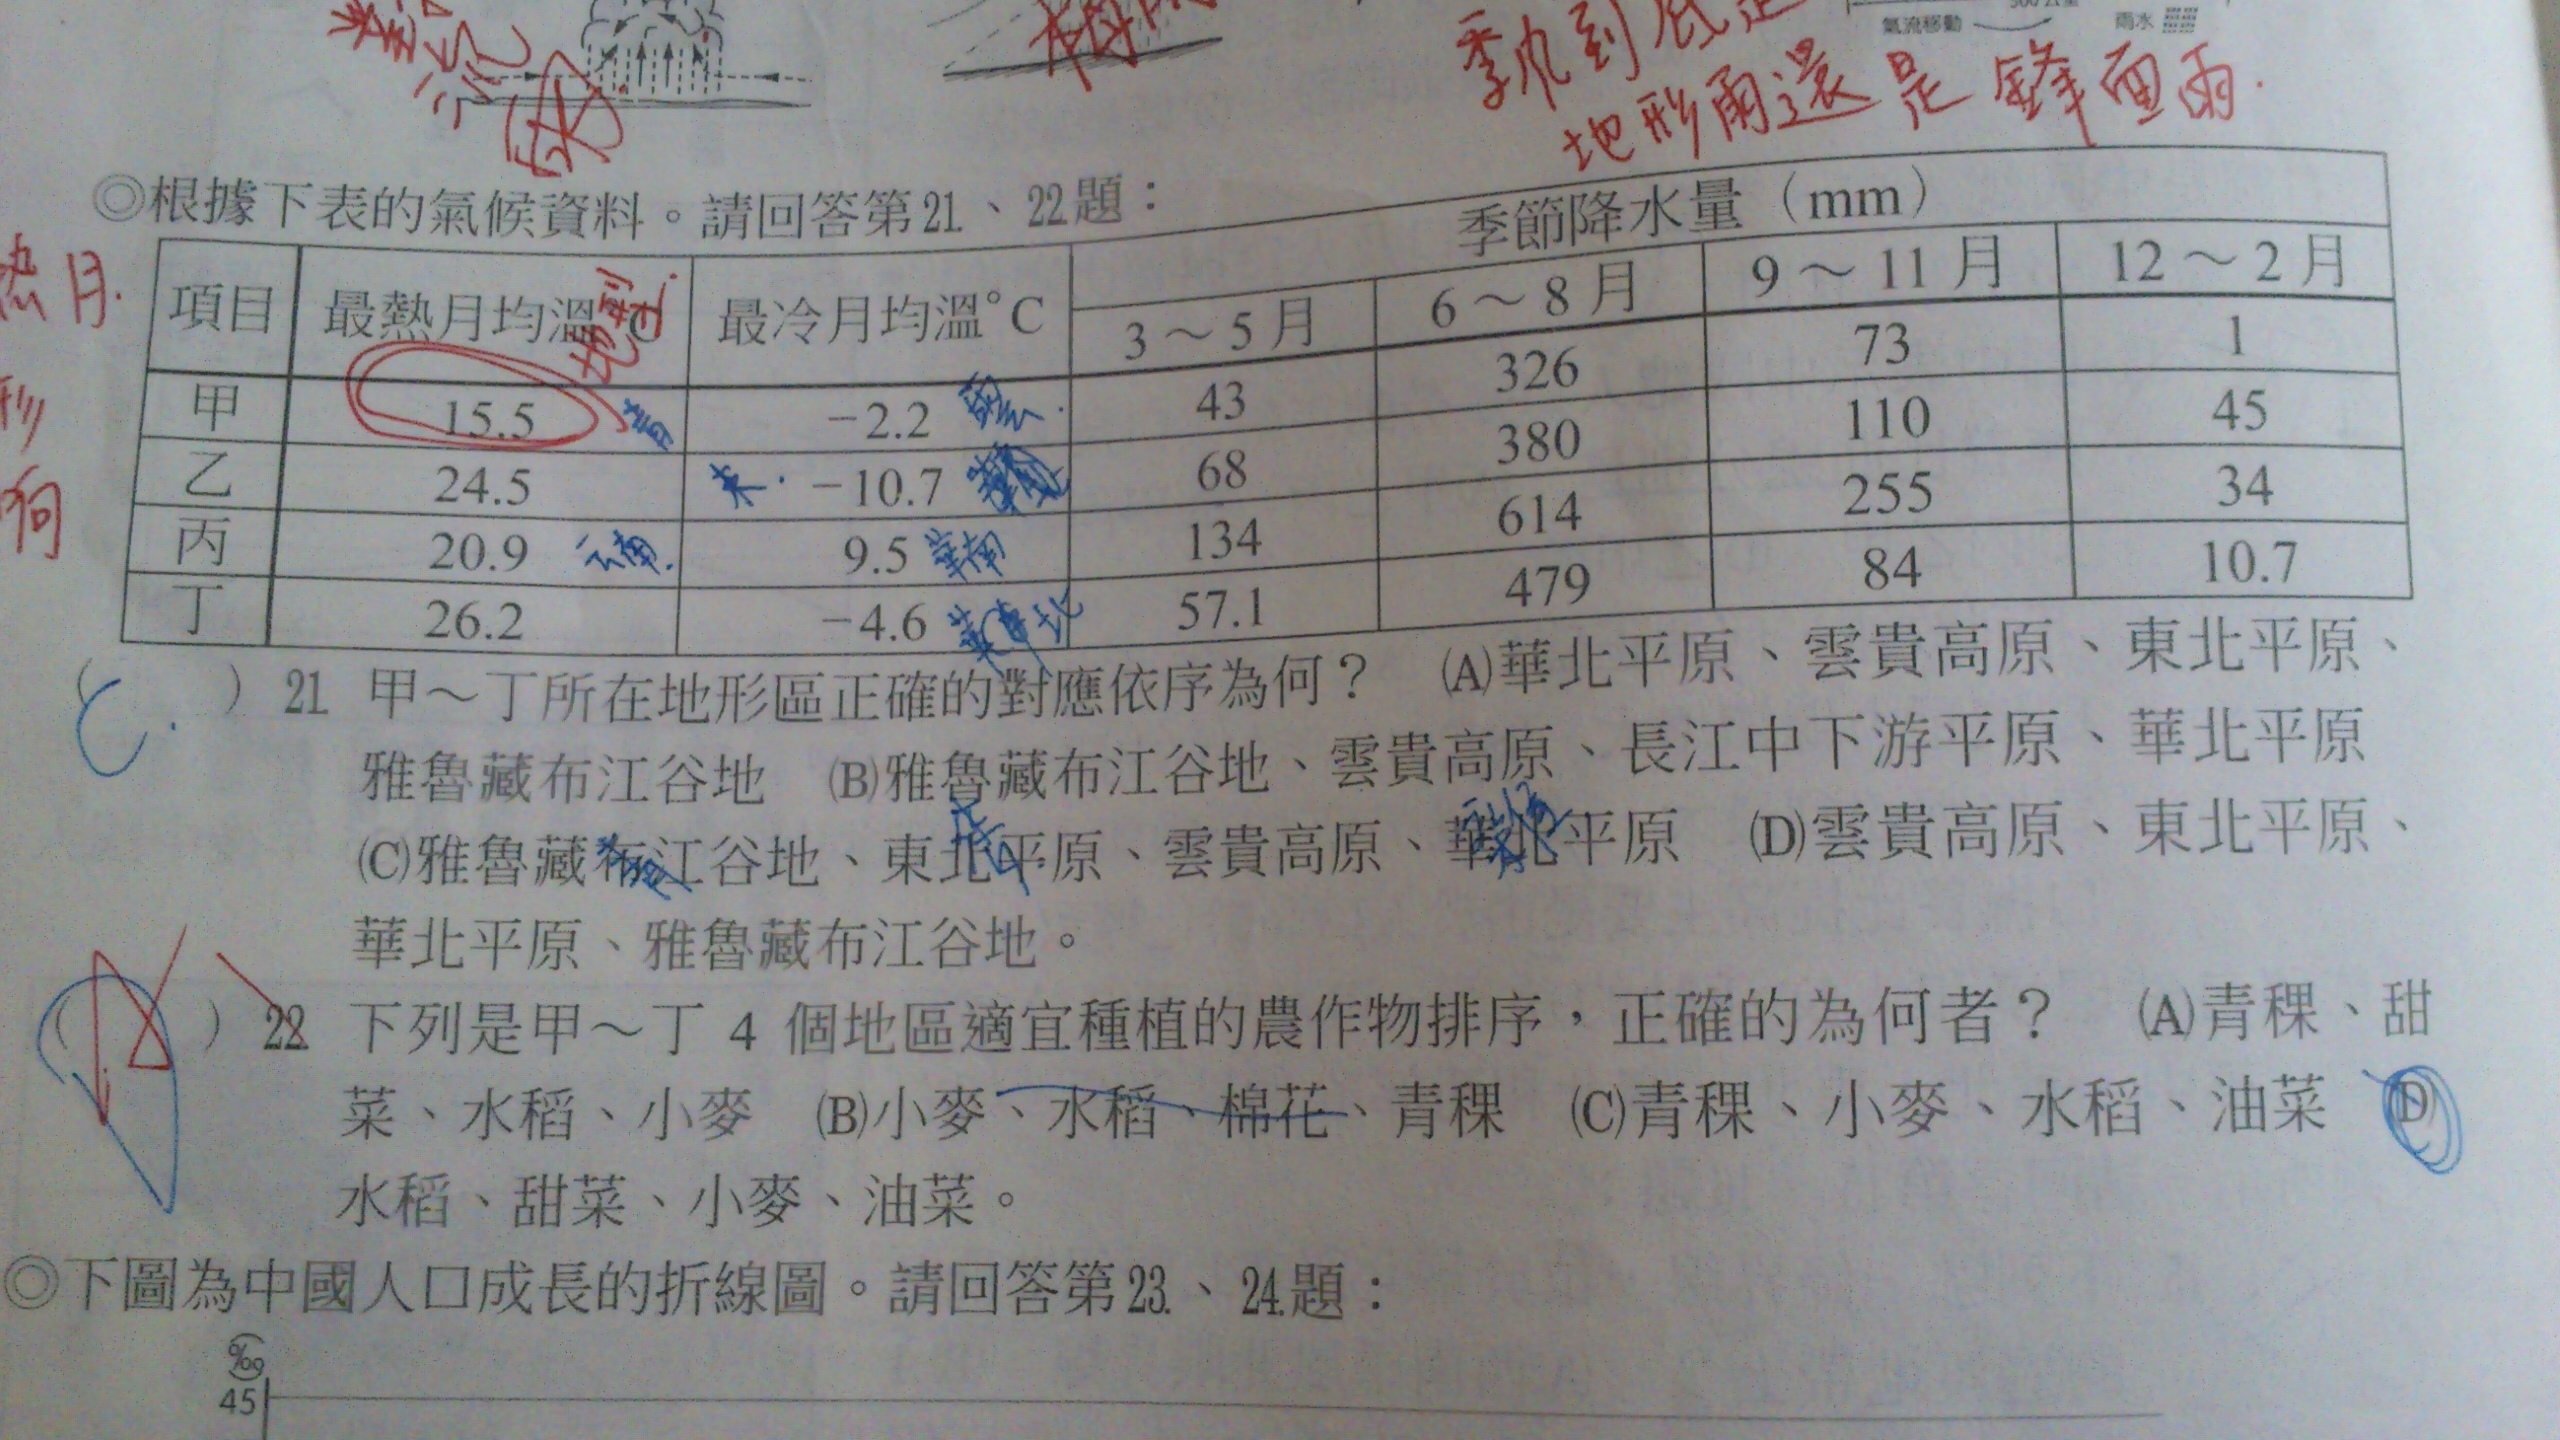 對流
雨
季風到底是
地形雨還是鋒面雨.
500公里
氣流移動
雨水
◎根據下表的氣候資料。請回答第21.、22題：
季節降水量（mm）
項目 最熱月均溫℃ 最冷月均溫℃ 3～5月 6～8月 9～11月 12～2月
甲 15.5 青 -2.2 43 326 73 1
乙 24.5 東. -10.7 68 380 110 45
丙 20.9 云南. 9.5 華南 134 614 255 34
丁 26.2 -4.6 華北 57.1 479 84 10.7
地型.
熱月.
形
（C.）21 甲～丁所在地形區正確的對應依序為何？ (A)華北平原、雲貴高原、東北平原、
雅魯藏布江谷地 (B)雅魯藏布江谷地、雲貴高原、長江中下游平原、華北平原
(C)雅魯藏布江谷地、東北平原、雲貴高原、華北平原 (D)雲貴高原、東北平原、
華北平原、雅魯藏布江谷地。
（A）22 下列是甲～丁 4 個地區適宜種植的農作物排序，正確的為何者？ (A)青稞、甜
菜、水稻、小麥 (B)小麥、水稻、棉花、青稞 (C)青稞、小麥、水稻、油菜 (D)
水稻、甜菜、小麥、油菜。
◎下圖為中國人口成長的折線圖。請回答第23.、24.題：
(‰)
45